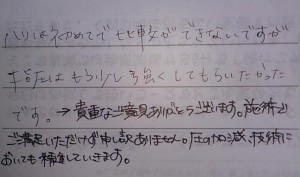 ハリは初めてで比較ができないですが
指圧はもう少し強くしてもらいたかった
です。→貴重なご意見ありがとうございます。施術に
ご満足いただけず申し訳ありません。圧のかけ減、技術に
おいても精進していきます。